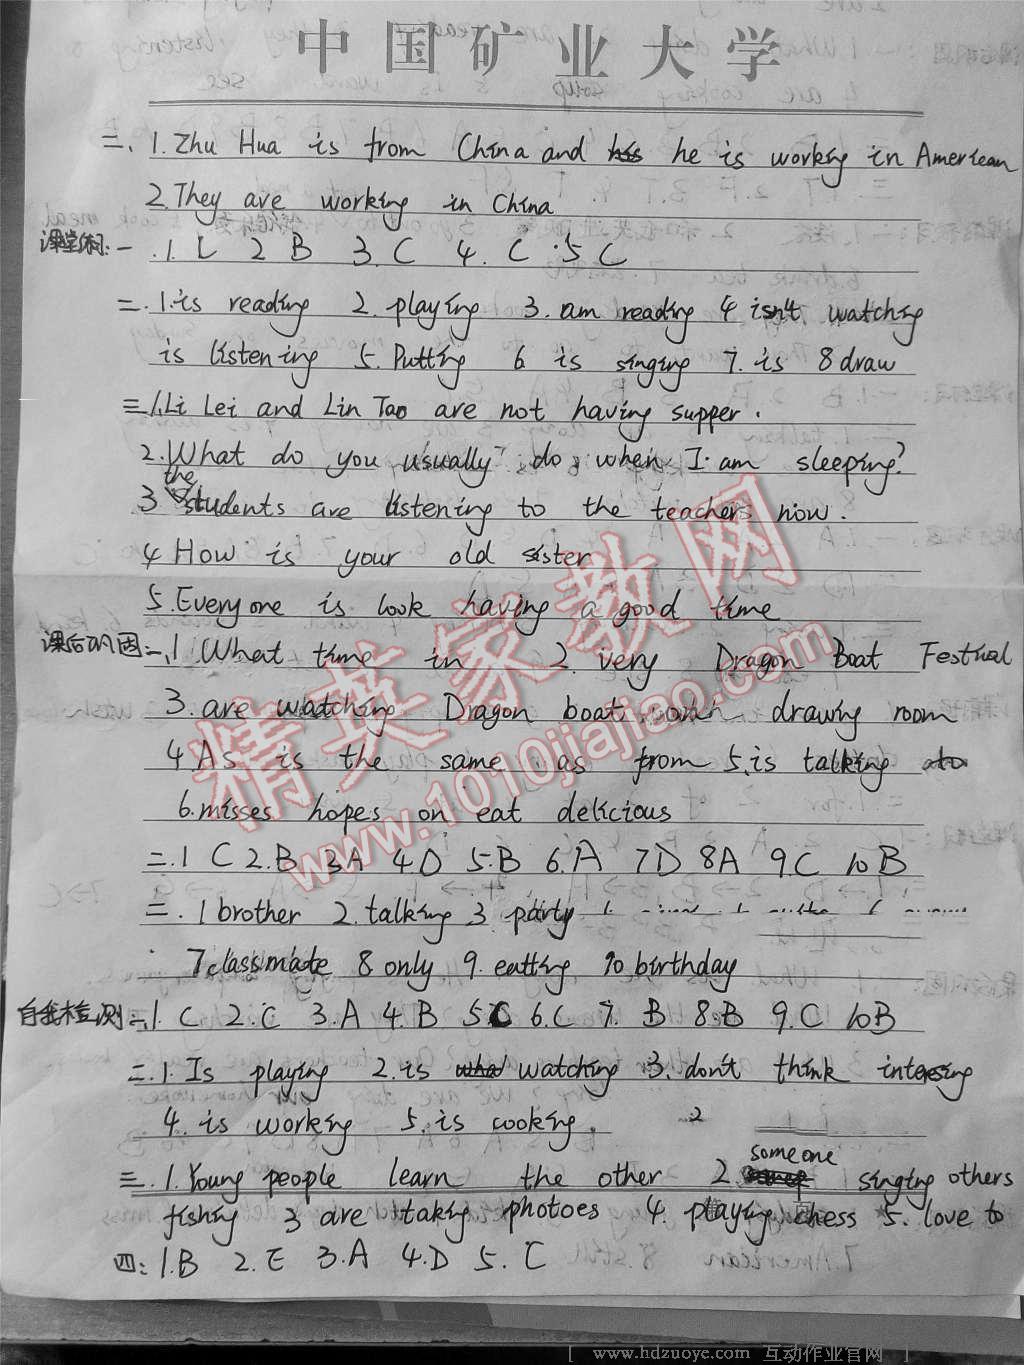 中国矿业大学
二、1. Zhu Hua is from China and his he is working in American
2. They are working in China
课堂练习: 一 .1. C 2 B 3. C 4. C 5 C
二、1. is reading 2. playing 3. am reading 4 isn't watching
is listening 5. Putting 6 is singing 7. is 8 draw
三 1. Li Lei and Lin Tao are not having supper.
2. What do you usually do when I am sleeping?
3 the students are listening to the teachers now.
4 How is your old sister
5. Everyone is look having a good time
课后巩固: 一、1 What time in 2. very Dragon Boat Festival
3. are watching Dragon boat on drawing room
4 As is the same as from 5. is talking to
6. misses hopes on eat delicious
二.1 C 2.B 3A 4.D 5.B 6.A 7D 8A 9.C 10 B
三 . 1 brother 2. talking 3 party
7 classmate 8 only 9. eatting 10 birthday
自我检测: 一、1. C 2. C 3. A 4. B 5 C 6. C 7. B 8. B 9. C 10B
二.1. Is playing 2. is watching 3. don't think intersing
4. is working 5. is cooking. 2
三 .1. Young people learn the other 2. someone singing others
fishing 3 are taking photoes 4. playing chess 5. love to
四: 1. B 2. E 3. A 4. D 5. C
7. American 8 still
精英家教网
www.1010jiajiao.com
[ www.hdzuoye.com 互动作业官网 ]